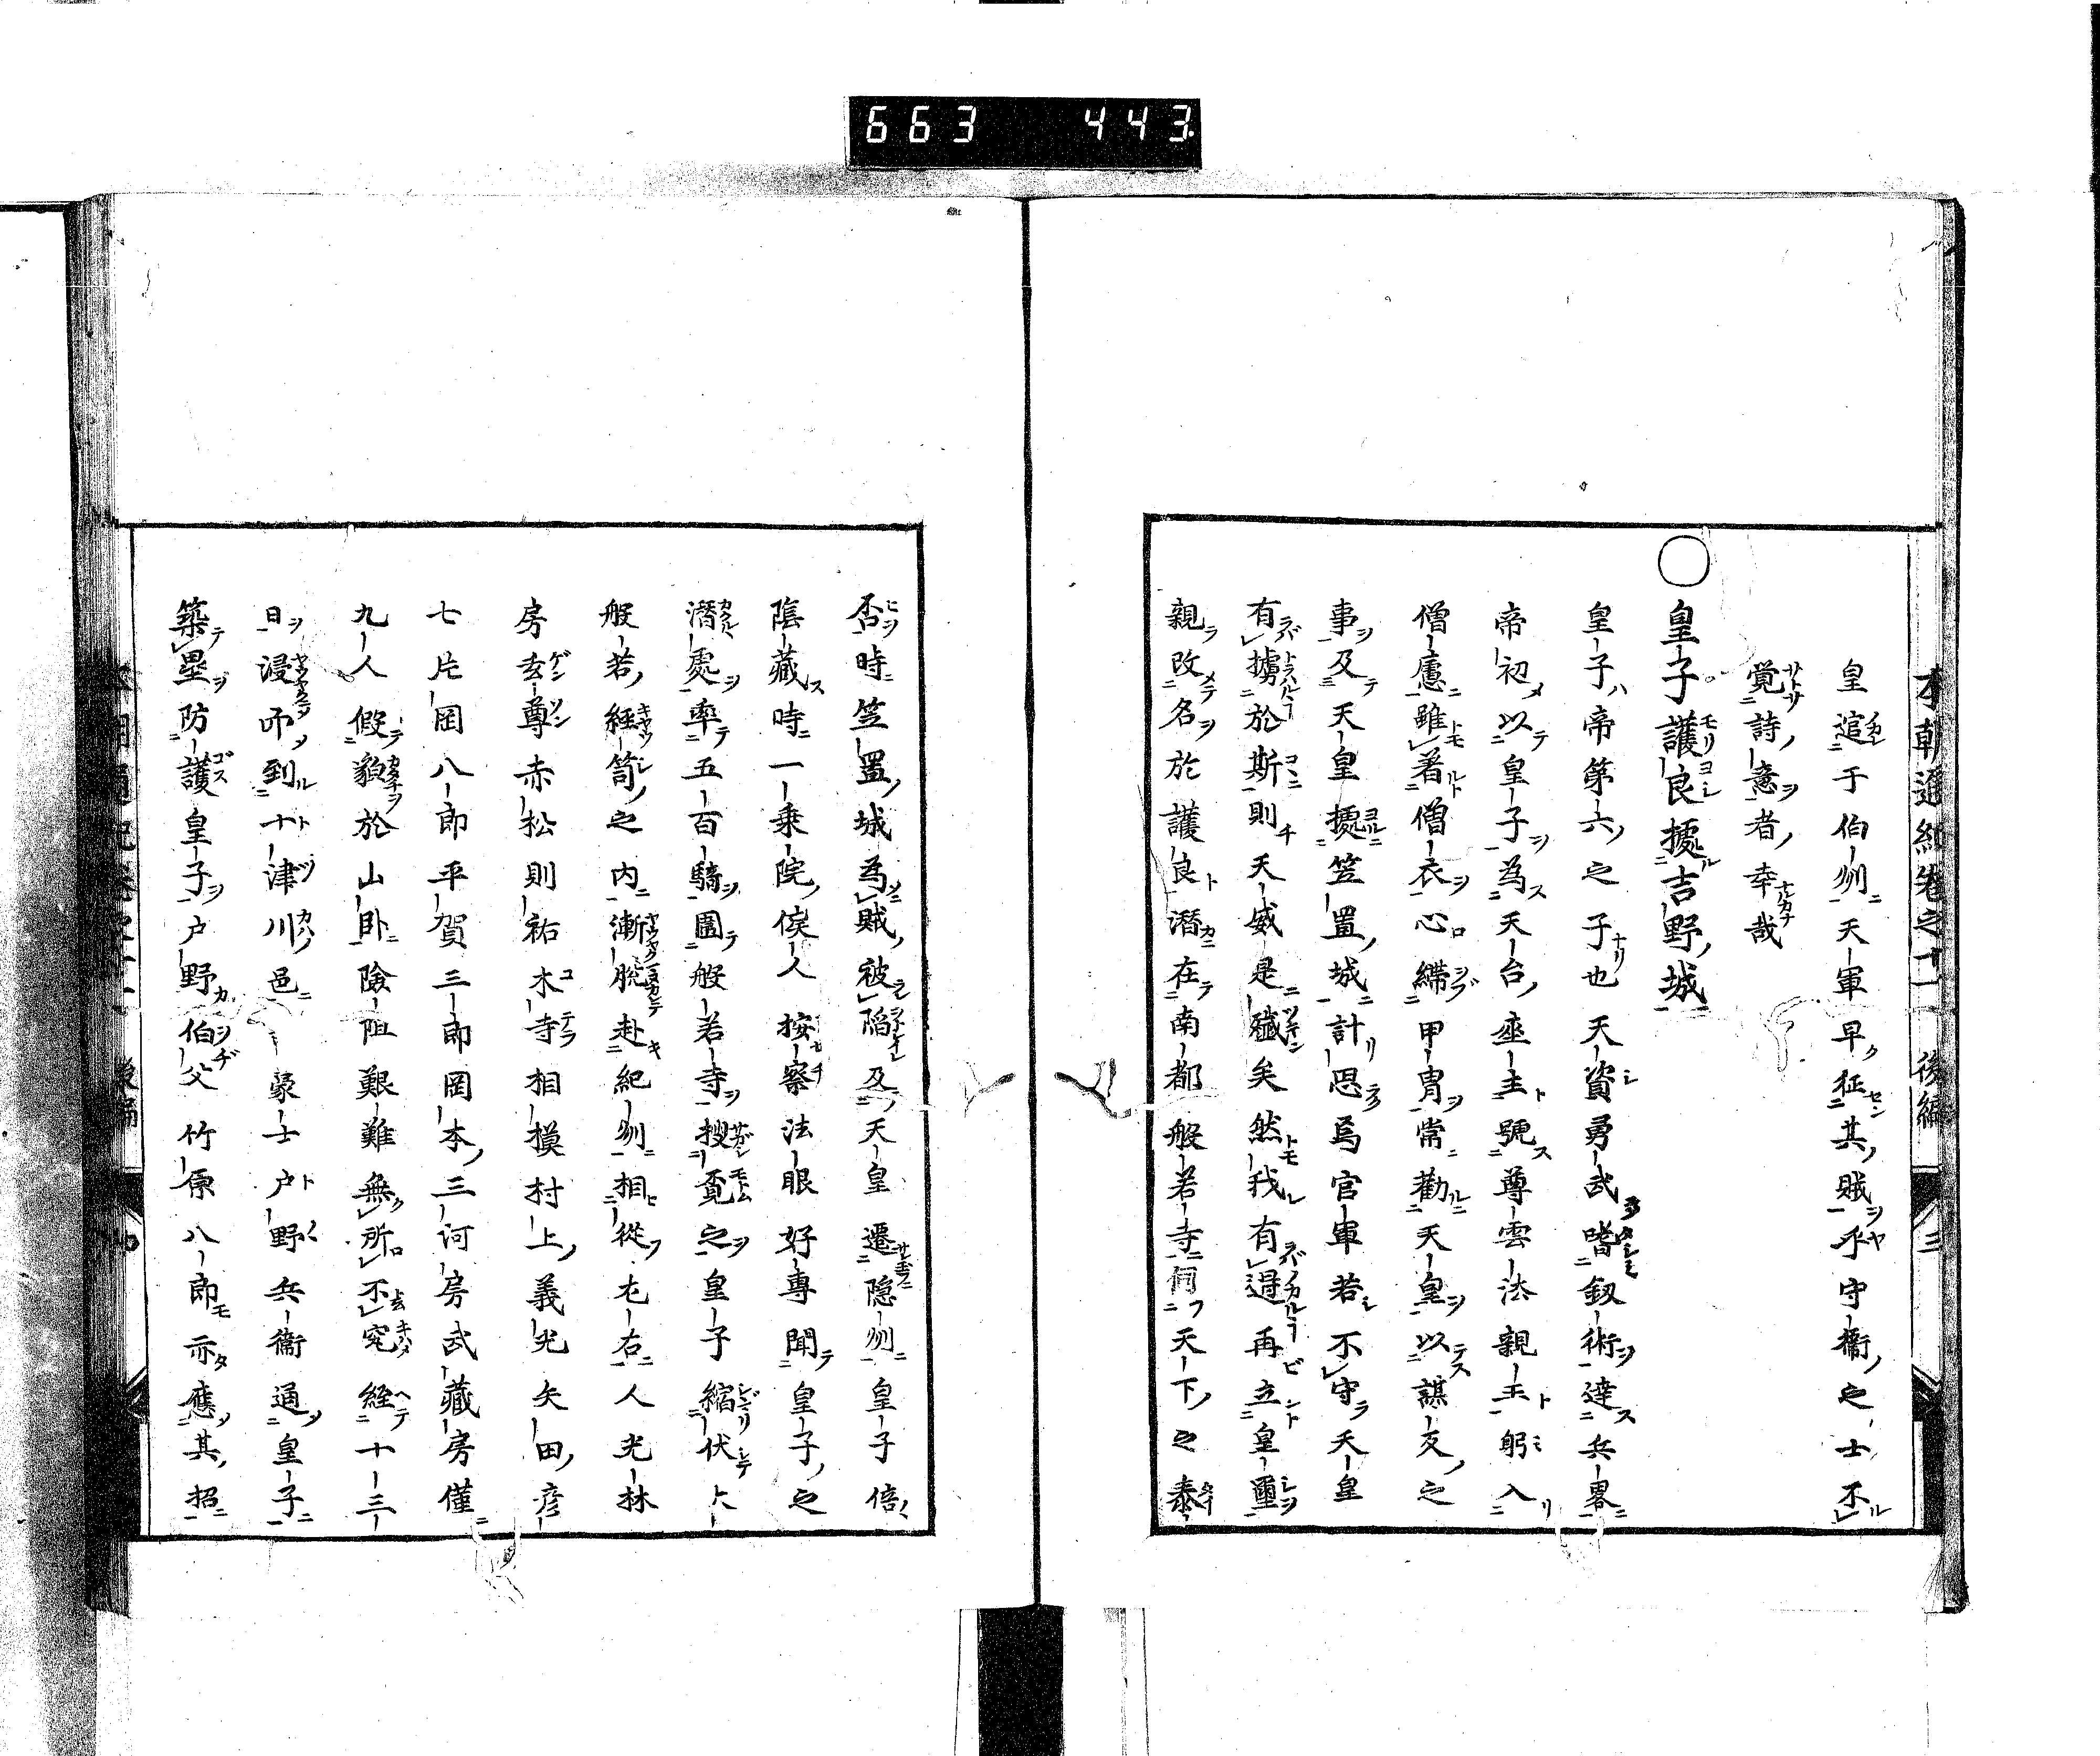 663 443
本朝通紀卷之十一 後編 三
皇逭于伯州天軍早征其賊乎守衞之士不
覺詩意者幸哉
○皇子護良據吉野城
皇子ハ帝第六之子也天資勇武嗜釼術達兵畧
帝初以皇子為天台座主號尊雲法親王躬入
僧慮雖著僧衣心繙甲冑常勸天皇以謀文之
事及天皇據笠置城計思爲官軍若不守天皇
有擄於斯則天威是殲矣然我有遁再立皇璽
親改名於護良潛在南都般若寺伺天下之泰
否時笠置城為賊被陷及天皇遷隠州皇子倍
陰藏時一乗院候人按察法眼好專聞皇子之
潛處率五百騎圍般若寺搜覔之皇子縮伏大
般若經笥之内漸脫赴紀州相從左右人光林
房玄尊赤松則祐木寺相摸村上義光矢田彦
七片岡八郎平賀三郎岡本三河房武藏房僅
九人假貌於山臥險阻艱難無所不究經十三
日浸而到十津川邑豪士戸野兵衞通皇子
築壘防護皇子戸野伯父竹原八郎亦應其招